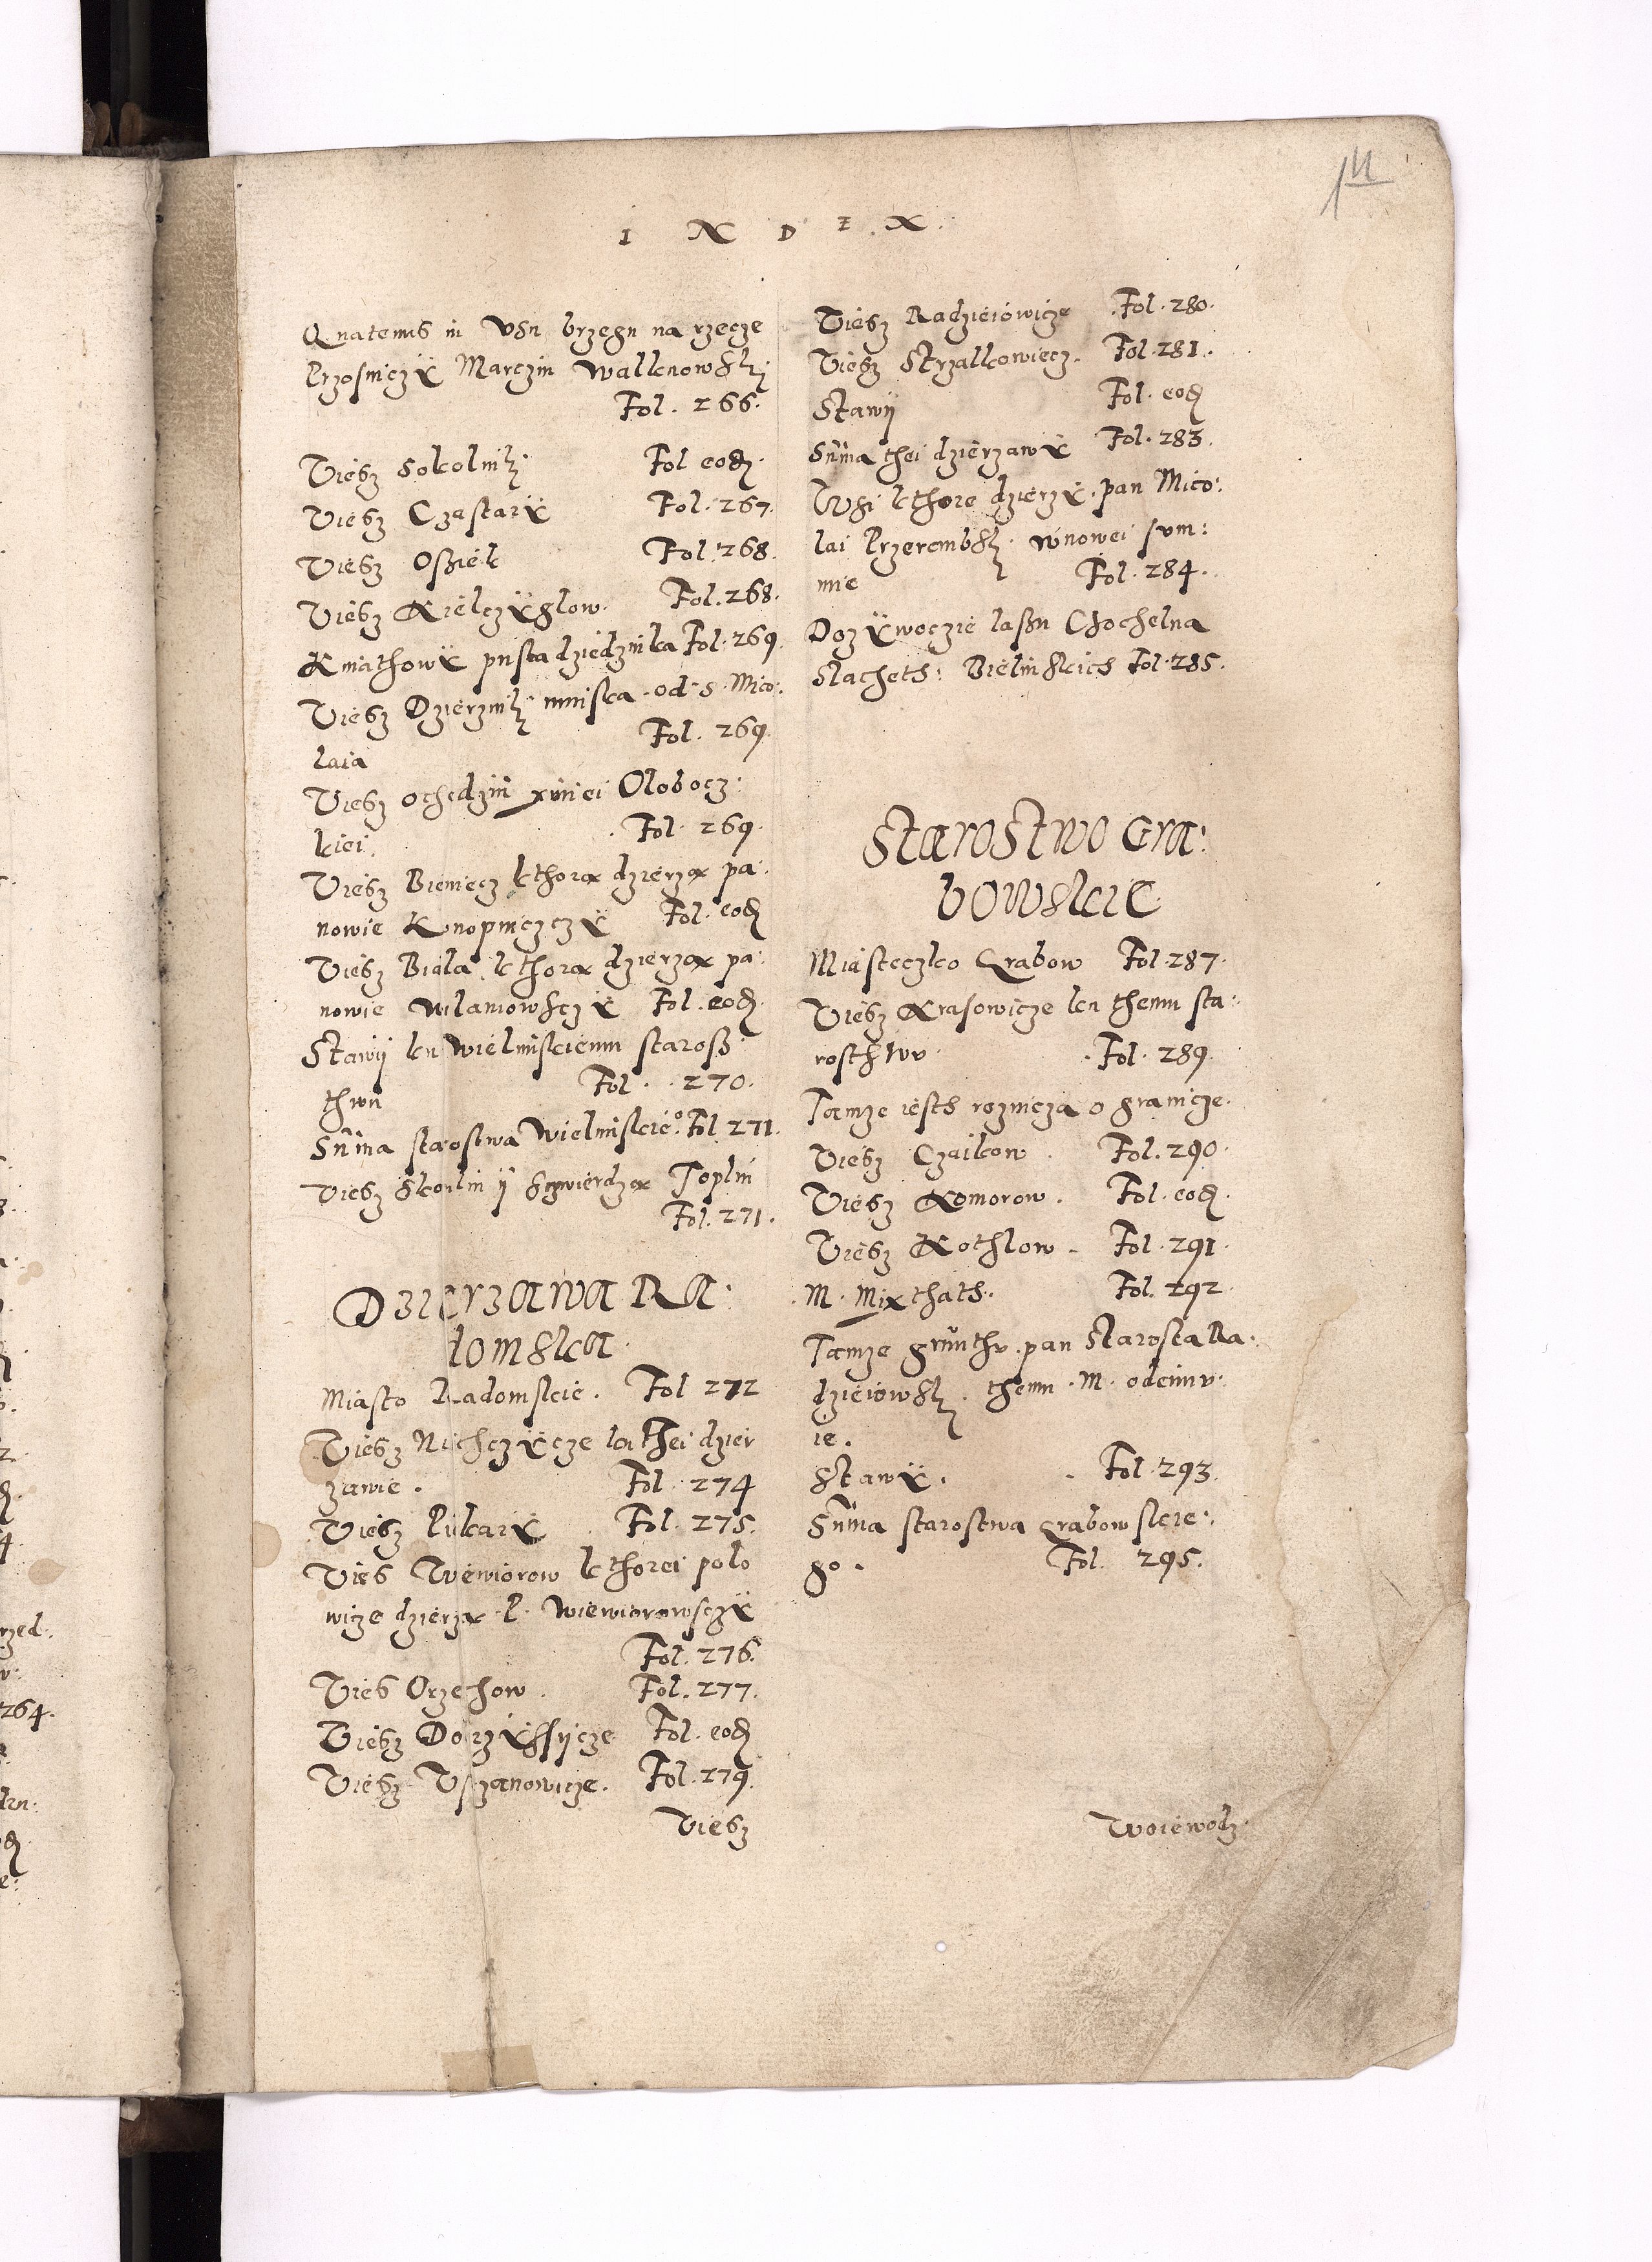 11
INDEX.
Quatenus in vsu brzegu na rzecze
Przosniczÿ Marczin Walknowsky
Fol. 266.
Viesz Sokolniky Fol eod.
Viesz Czastarÿ Fol. 267.
Viesz Osziek Fol. 268.
Viesz Kielczÿglow. Fol. 268.
Kmathowÿ pusta dziedzinka Fol. 269.
Viesz Dzierzniky mniska od S. Mico:
laia Fol. 269.
Viesz Ochedzin xiniei Olobocz:
kiei. Fol. 269.
Viesz Bieniecz kthorą dzierzą pa:
nowie Konopniczczÿ Fol. eod
Viesz Biala kthorą dzierzą pa:
nowie Milaniowsczÿ Fol. eod.
Stawÿ ku Wielunskiemu starosz:
thwu Fol. 270.
Summa starostwa Wielunskie⁰. Fol 271.
Viesz Skomlin ÿ Toplin
Fol. 271.
Dzierzawa Ra:
domska.
Miasto Radomskie. Fol 272
Viesz Nichczÿcze ku thei dzier
zawie. Fol. 274
Viesz Pukarÿ Fol. 275.
Vies Wiewiorow kthorei polo
wicze dzierzą P. Wiewiorowsczÿ
Fol. 276.
Vies Orzechow. Fol. 277.
Viesz Fol. eod
Viesz Vszanowicze. Fol. 279.
Viesz
Viesz Radzieiowicze Fol. 280.
Viesz Strzalkowiecz. Fol. 281.
Stawÿ Fol. eod
Summa thei dzierzawÿ Fol. 283.
Wsi kthore dzierzÿ pan Mico:
lai Przerembsky w nowei sum:
mie Fol. 284.
Dozÿwoczie lassu Chochelna
Slacheth: Bielinskich Fol. 285.
Starostwo Gra:
bowskie
Miasteczko Grabow Fol. 287.
Viesz Krasowicze ku themu sta:
rosthwu Fol. 289.
Tamze iesth roznicza o granicze.
Viesz Czaikow. Fol. 290.
Viesz Komorow. Fol. eod.
Viesz Kothlow. Fol. 291.
M. Mixthath. Fol. 292.
Tamze grunthv pan Starosta Ra:
dzieiowsky themu M. odeimv:
ie.
Stawÿ. Fol. 293.
Summa starostwa Grabowskie:
go. Fol. 295.
Woiewodz: